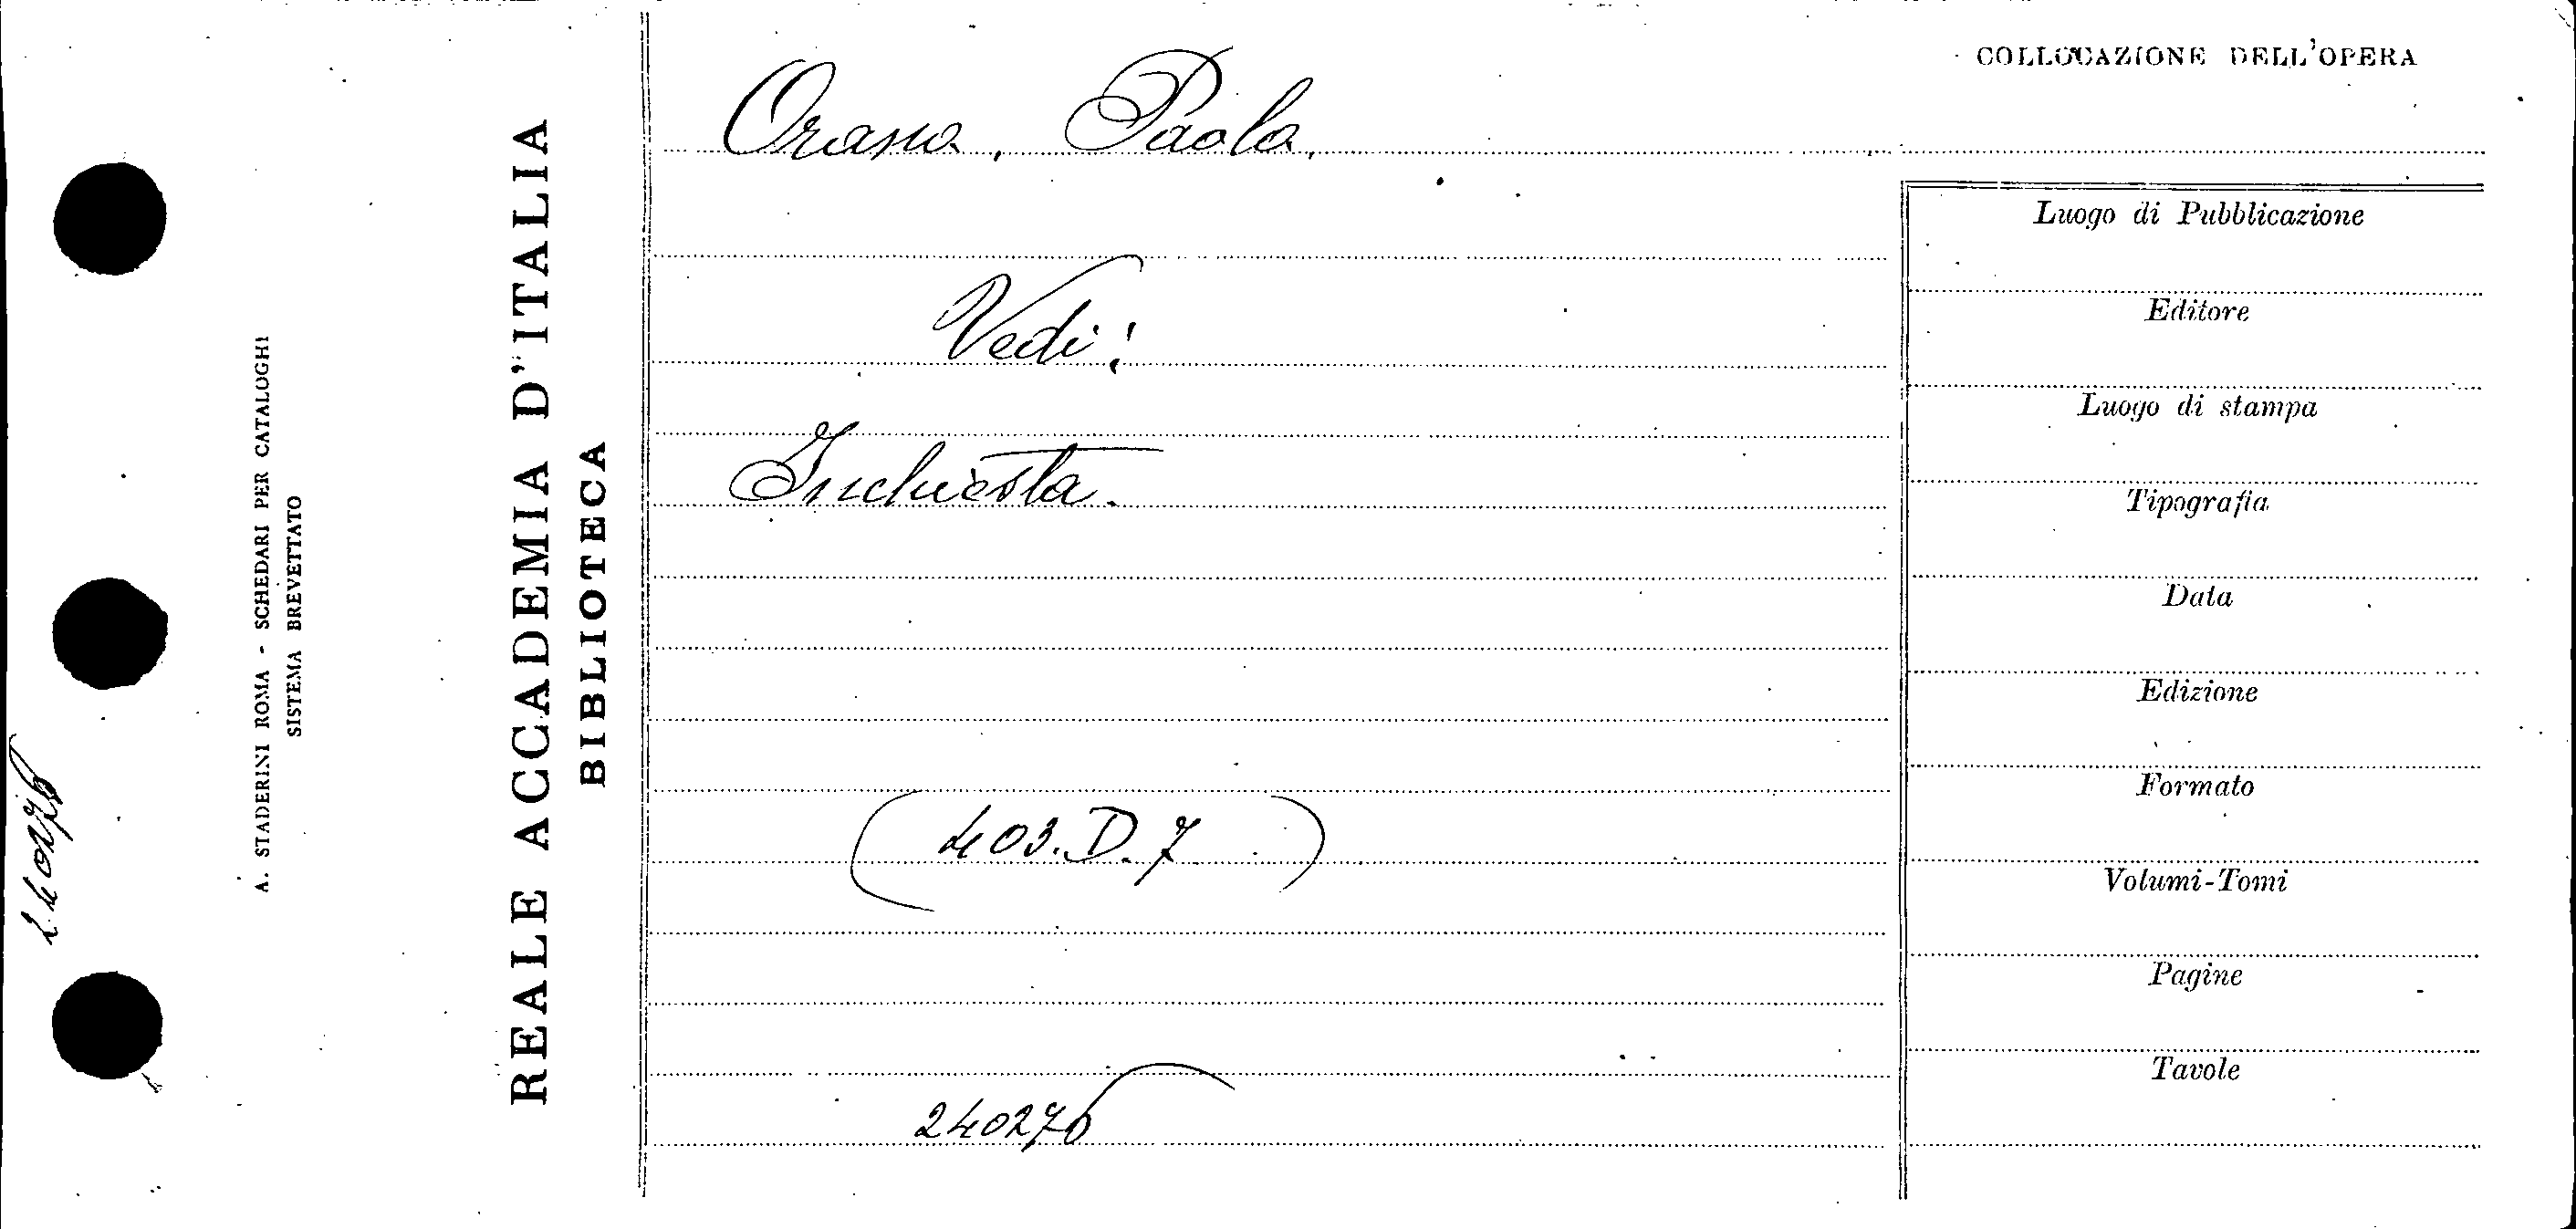 240276
A. STADERINI ROMA - SCHEDARI PER CATALOGHI
SISTEMA BREVETTATO
REALE ACCADEMIA D'ITALIA
BIBLIOTECA
Orano, Paolo,
Vedi:
Inchiesta.
(403. D. 7 )
240276
COLLOCAZIONE DELL'OPERA
Luogo di Pubblicazione
Editore
Luogo di stampa
Tipografia
Data
Edizione
Formato
Volumi-Tomi
Pagine
Tavole